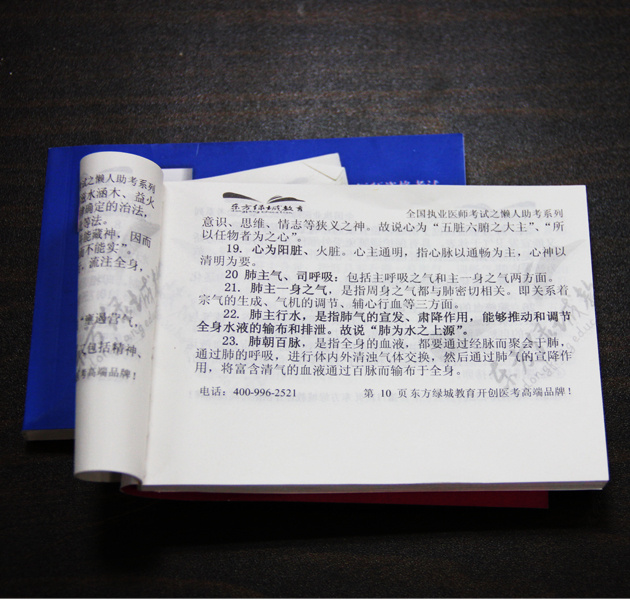 试之懒人助考系列
水涵木、益火
确定的治法,
等法。
能藏神,因而
不能实”。
,流注全身,
“壅遏营气,
包括精神、
考高端品牌!
东方绿城教育
全国执业医师考试之懒人助考系列
意识、思维、情志等狭义之神。故说心为“五脏六腑之大主”、“所
以任物者为之心”。
19. 心为阳脏、火脏。心主通明,指心脉以通畅为主,心神以
清明为要。
20 肺主气、司呼吸:包括主呼吸之气和主一身之气两方面。
21. 肺主一身之气,是指周身之气都与肺密切相关。即关系着
宗气的生成、气机的调节、辅心行血等三方面。
22. 肺主行水,是指肺气的宣发、肃降作用,能够推动和调节
全身水液的输布和排泄。故说“肺为水之上源”。
23. 肺朝百脉,是指全身的血液,都要通过经脉而聚会于肺,
通过肺的呼吸,进行体内外清浊气体交换,然后通过肺气的宣降作
用,将富含清气的血液通过百脉而输布于全身。
电话:400-996-2521
第 10 页东方绿城教育开创医考高端品牌!